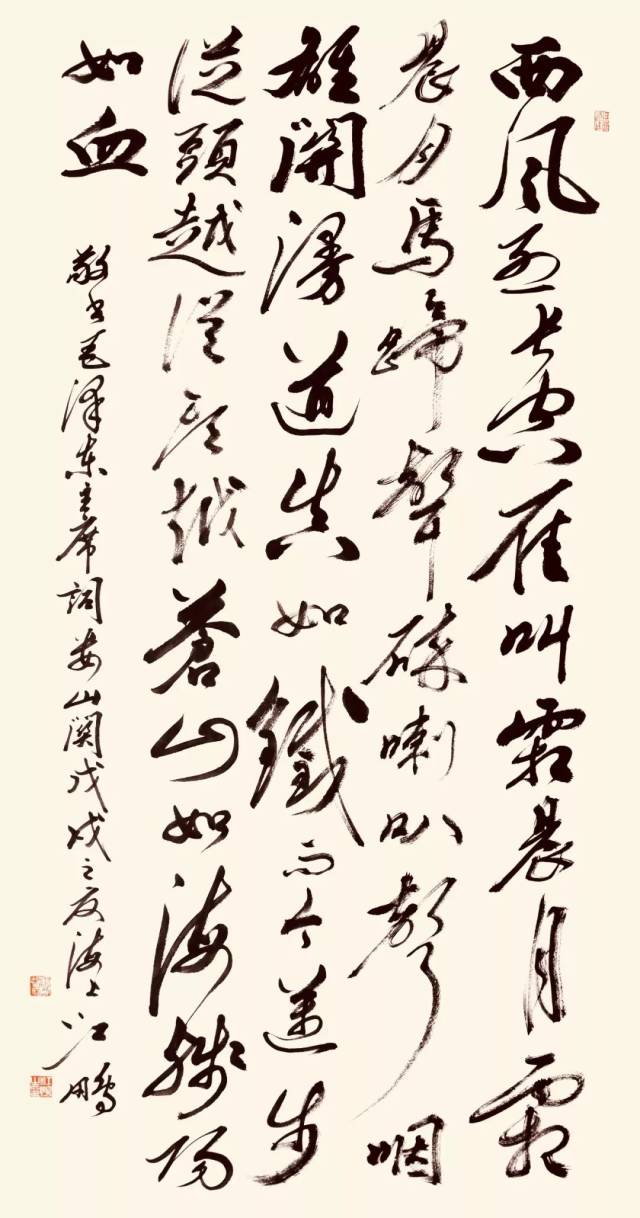 西風烈長空雁叫霜晨月霜
晨月馬蹄聲碎喇叭聲咽
雄關漫道真如鐵而今邁步
從頭越從頭越蒼山如海殘陽
如血
敬書毛澤東主席詞婁山關戊戌之夏海上江鵬